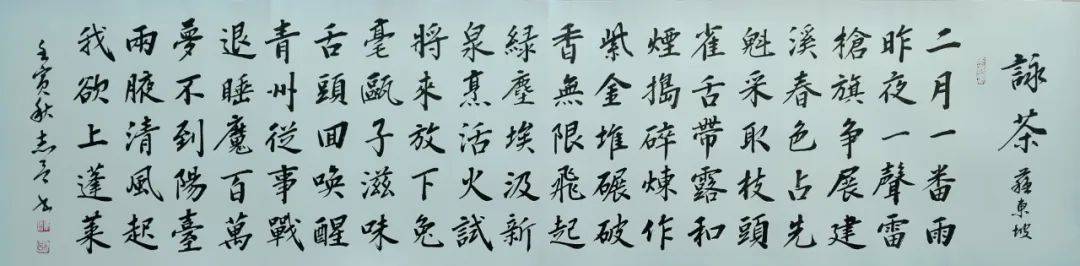 詠茶 蘇東坡
二月一番雨
昨夜一聲雷
槍旗争展建
溪春色占先
魁采取枝頭
雀舌帶露和
煙搗碎煉作
紫金堆碾破
香無限飛起
緑塵埃汲新
泉烹活火試
將來放下兔
毫甌子滋味
舌頭回喚醒
青州從事戰
退睡魔百萬
夢不到陽臺
兩腋清風起
我欲上蓬萊
壬寅秋志书